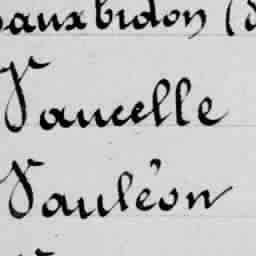 auxbidon (
Vaucelle
Vauléon